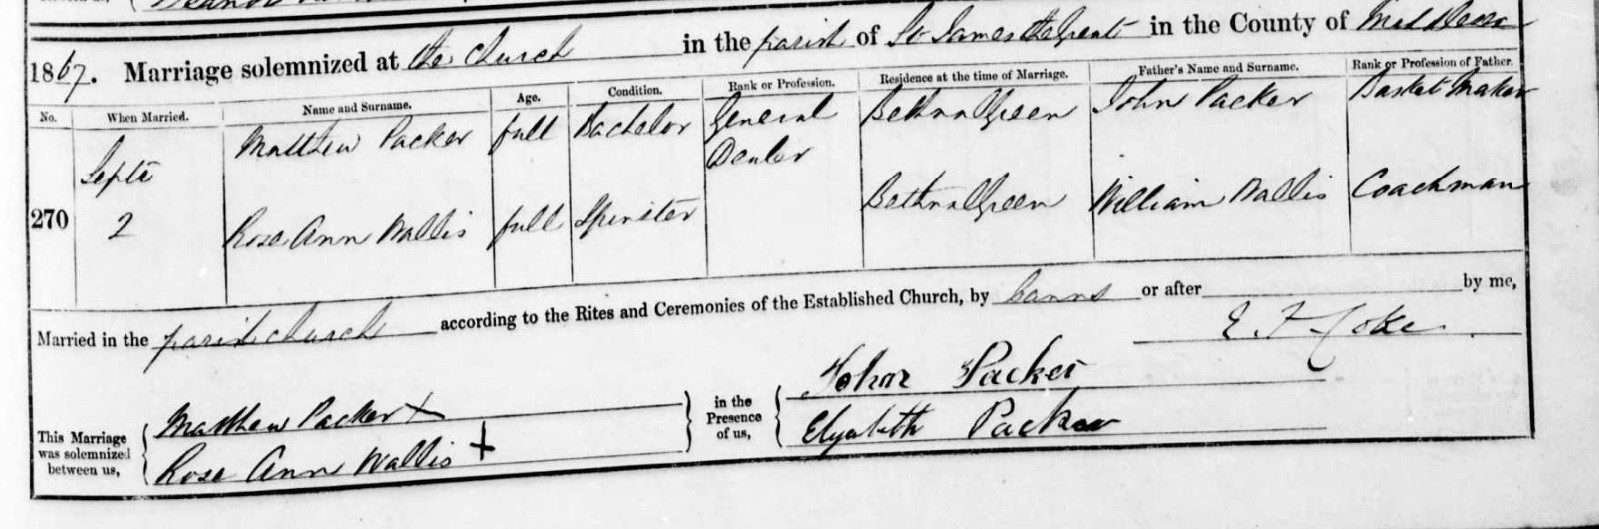 1867. Marriage solemnized at the Church in the parish of St James the Great in the County of Middlesex
No. When Married. Name and Surname. Age. Condition. Rank or Profession. Residence at the time of Marriage. Father's Name and Surname. Rank or Profession of Father.
270 Septr 2 Matthew Packer full Bachelor General Dealer Bethnal Green John Packer Basket Maker
Rose Ann Wallis full Spinster Bethnal Green William Wallis Coachman
Married in the parish church according to the Rites and Ceremonies of the Established Church, by banns or after by me,
E. F. Coke
This Marriage was solemnized between us,
Matthew Packer X
Rose Ann Wallis X
in the Presence of us,
John Packer
Elyabeth Packer